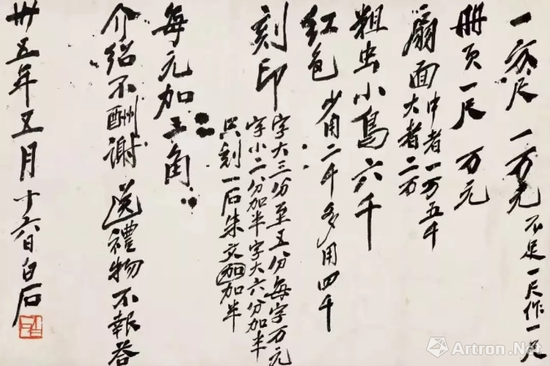 一方尺 一万元 不足一尺作一尺
册页一尺 万元
扇面 中者一万五千
大者二万
粗虫小鸟六千
红色 少用二千多用四千
刻印 字大三分至五分每字万元
字小二分加半字大六分加半
只刻一石朱文加加半
每元加五角
介绍不酬谢 送禮物不報答
卅五年五月十六日白石
Artron.Net